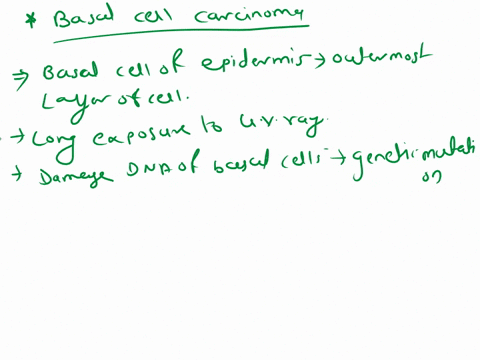 * Basal cell carcinoma
⇒ Basal cell of epidermis → outermost
Layer of cell.
→ Long exposure to u.v. ray.
→ Damage DNA of basal cells → genetic mutati
on